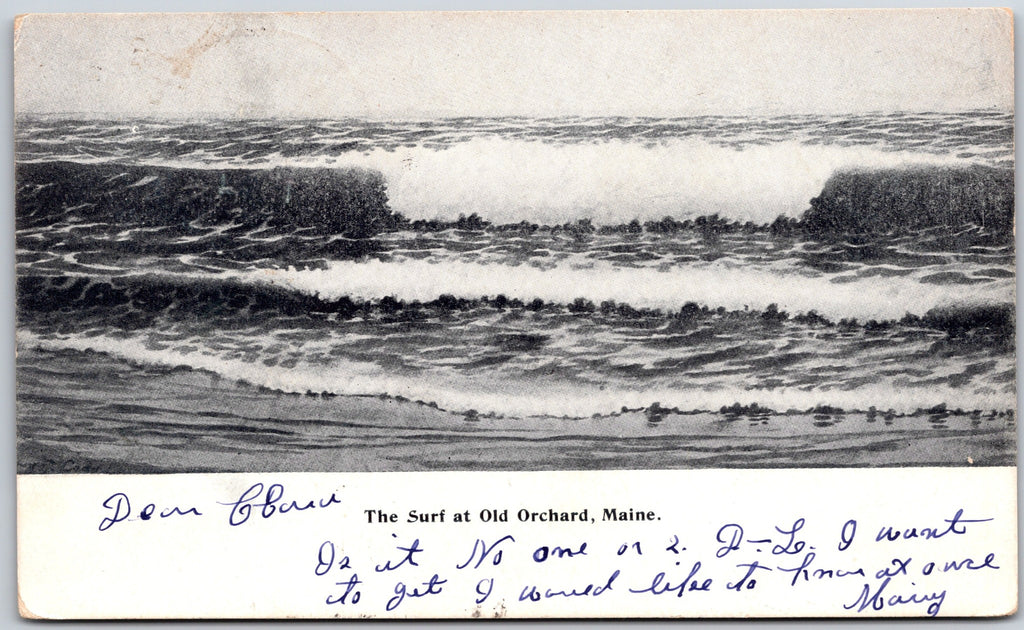 Dear Clara
The Surf at Old Orchard, Maine.
Is it No one or 2. D-L. I want
to get I would like to know at once
Mary